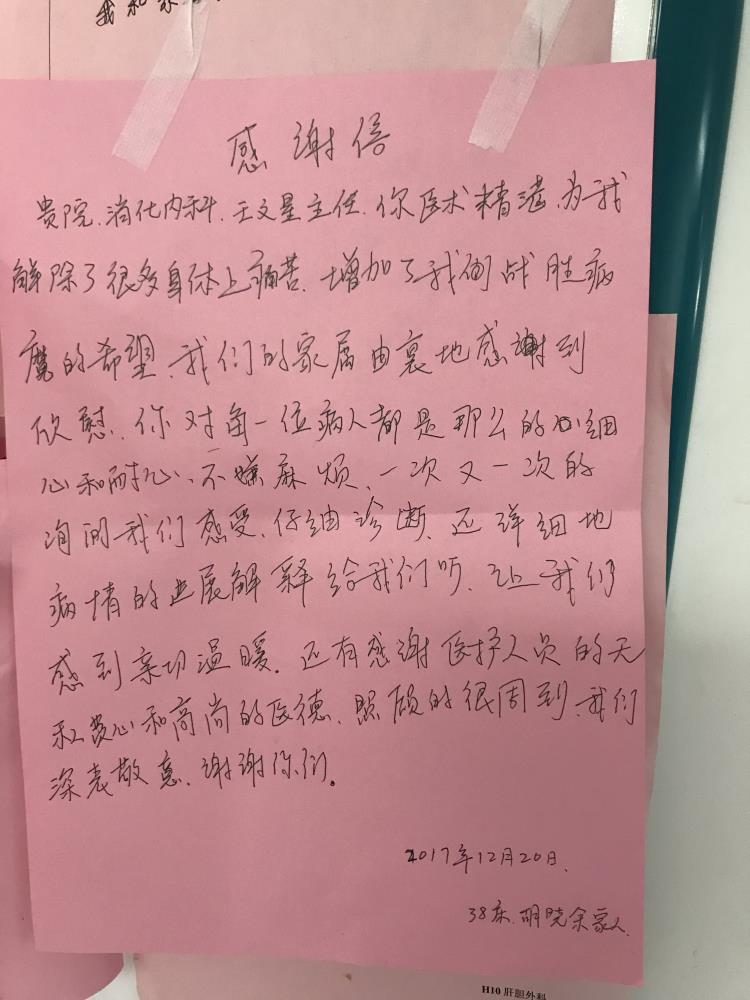 我和家
感谢信
贵院、消化内科、王文星主任、你医术精湛、为我
解除了很多身体上痛苦、增加了我们战胜病
魔的希望、我们的家属由衷地感谢到
欣慰、你对每一位病人都是那么的心细
心和耐心、不嫌麻烦、一次又一次的
询问我们感受、仔细诊断、还详细地
病情的进展解释给我们听、让我们
感到亲切温暖、还有感谢医护人员的无
私爱心和高尚的医德、照顾的很周到、我们
深表敬意、谢谢你们。
2017年12月20日、
38床、胡晓余家人、
H10 肝胆外科